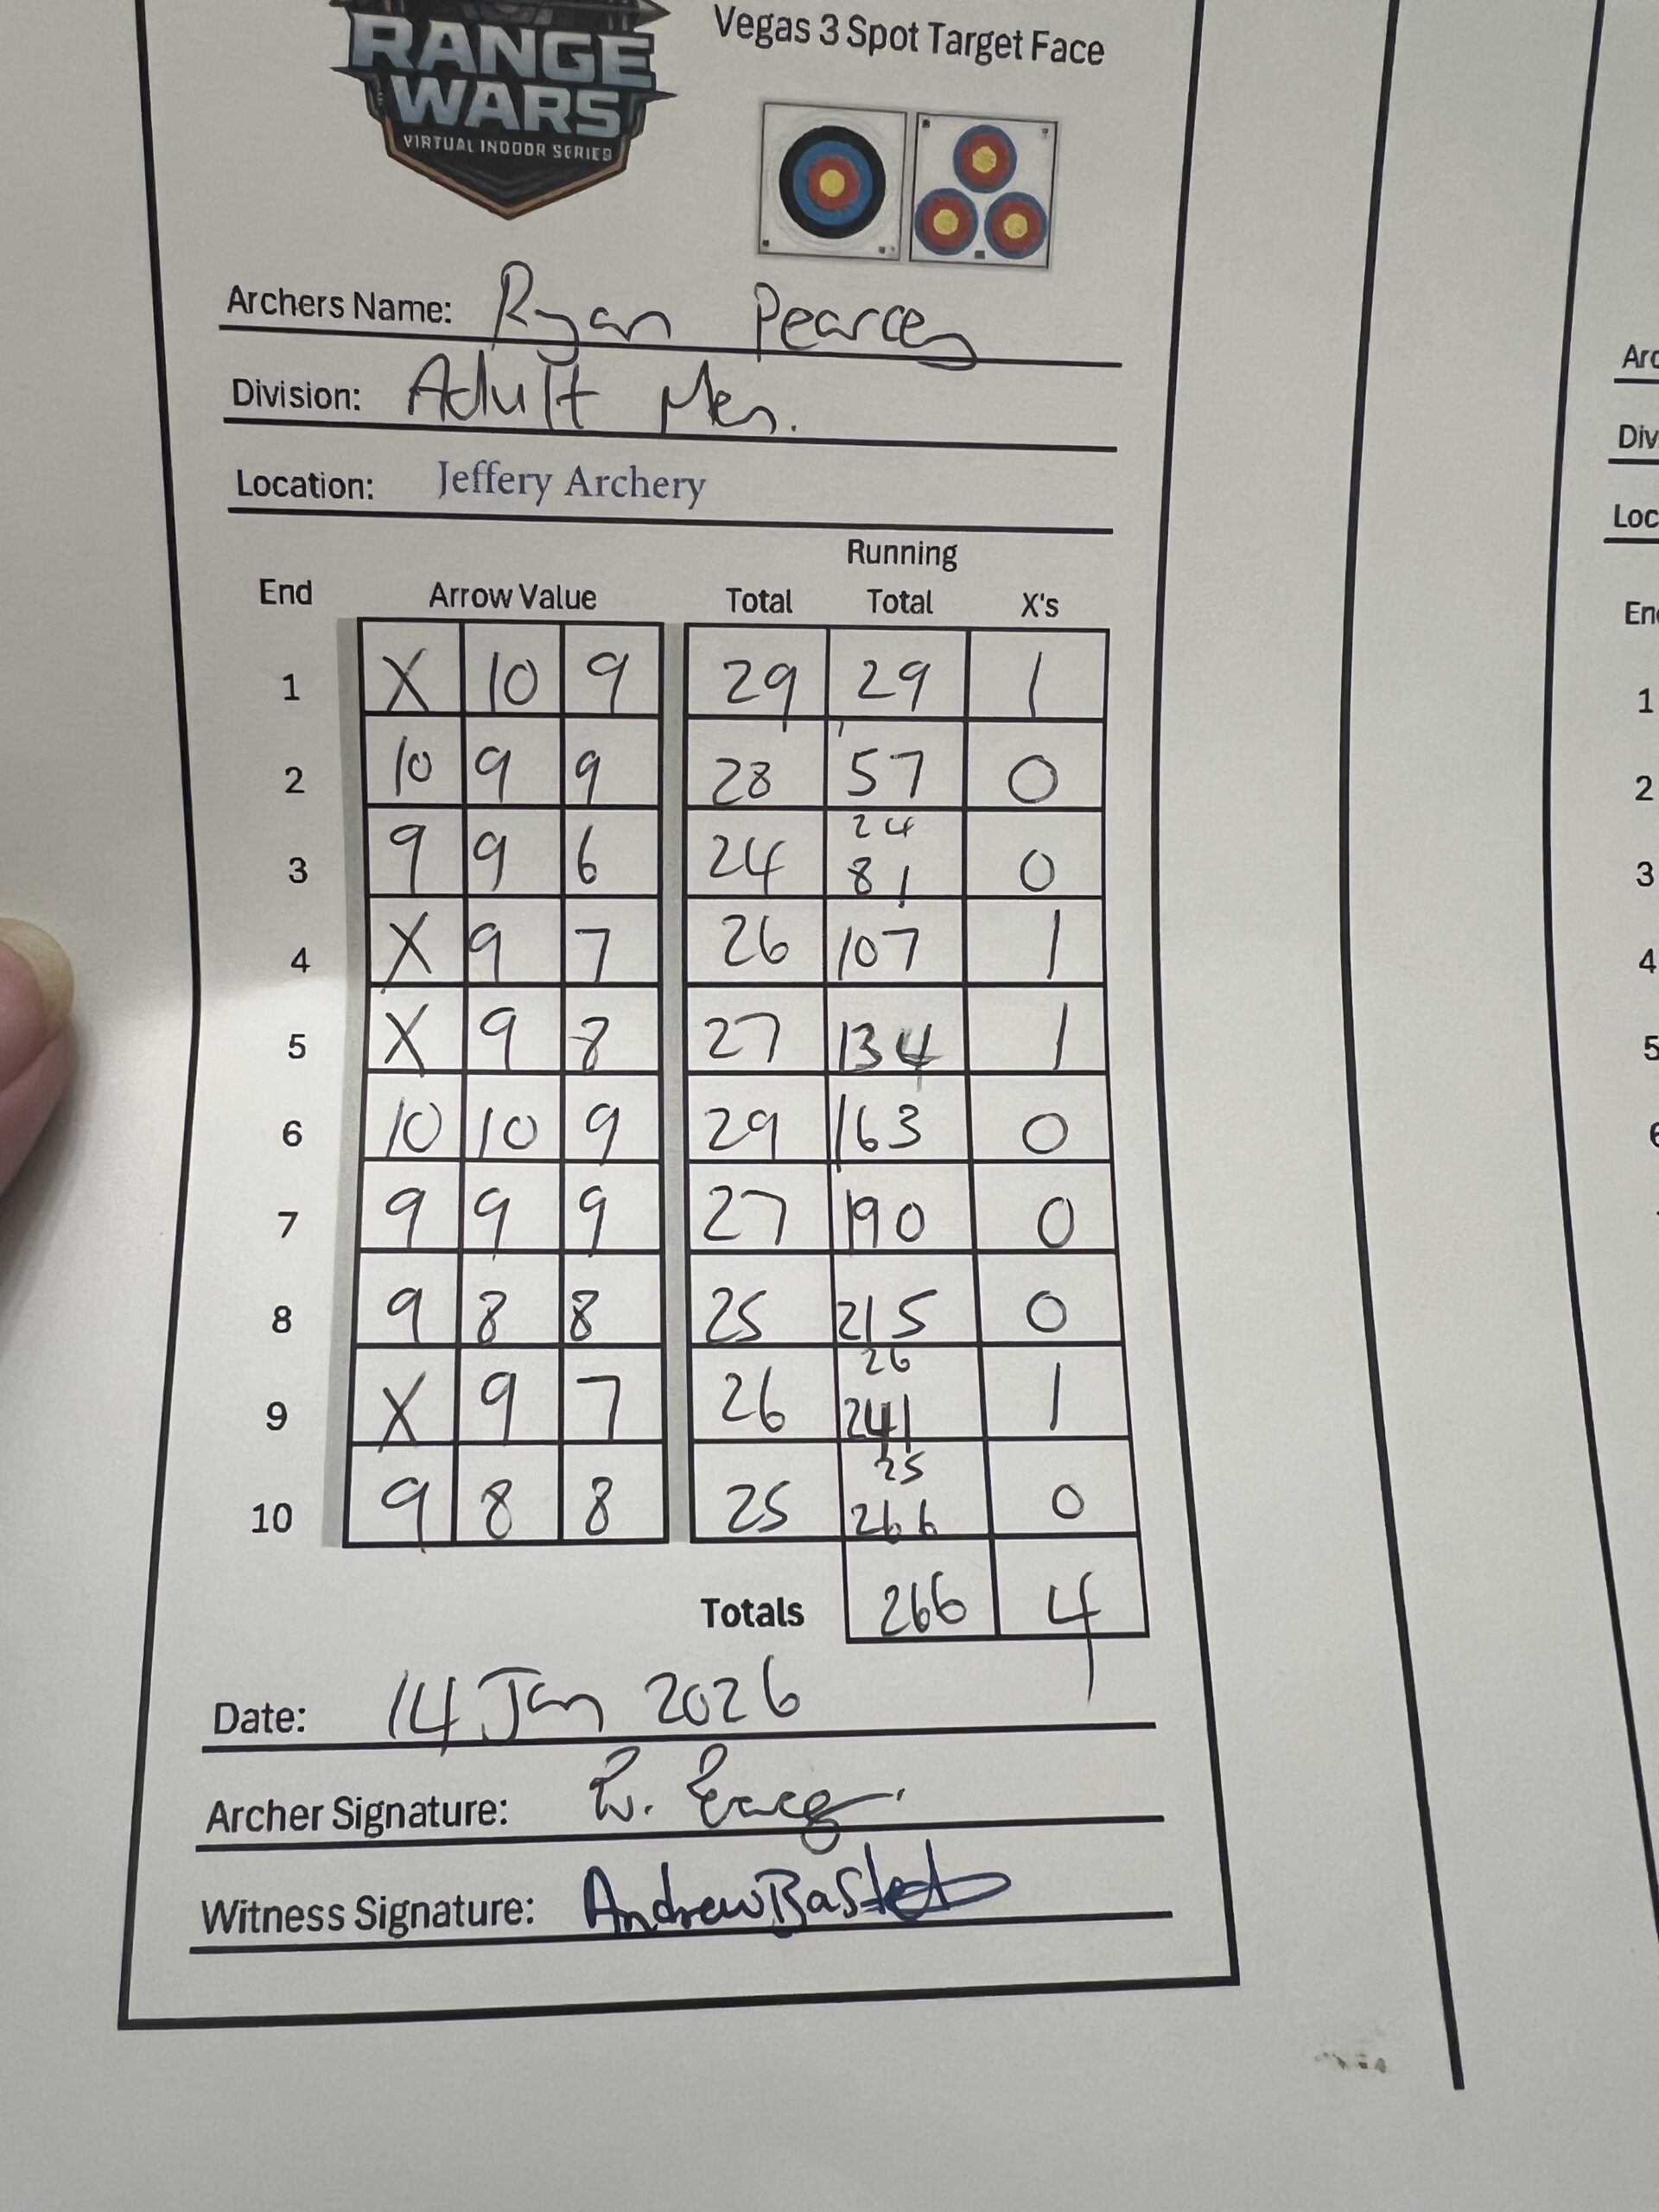 RANGE
WARS
VIRTUAL INDOOR SERIES
Vegas 3 Spot Target Face
Archers Name: Ryan Pearcey
Division: Adult Men.
Location: Jeffery Archery
End Arrow Value Total Running Total X's
1 X 10 9 29 29 1
2 10 9 9 28 57 0
24
3 9 9 6 24 81 0
4 X 9 7 26 107 1
5 X 9 8 27 134 1
6 10 10 9 29 163 0
7 9 9 9 27 190 0
8 9 8 8 25 215 0
26
9 X 9 7 26 241 1
25
10 9 8 8 25 266 0
Totals 266 4
Date: 14 Jan 2026
Archer Signature:
Witness Signature: Andrew
Arc
Div
Loc
En
1
2
3
4
5
6